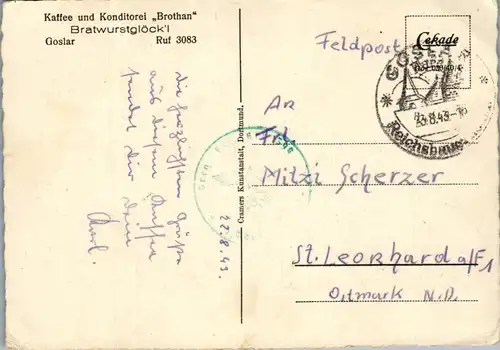 Kaffee und Konditorei „Brothan"
Bratwurstglöck'l
Goslar Ruf 3083
Die herzlichsten Grüße
aus diesem
sendet dir Dein
Karl.
22.8.43.
Cramers Kunstanstalt, Dortmund.
Feldpost
Cekade
GOSLAR
23.8.43-16
Reichsbauernstadt
An
Frl.
Mitzi Scherzer
St. Leonhard a/F1
Ostmark N.D.